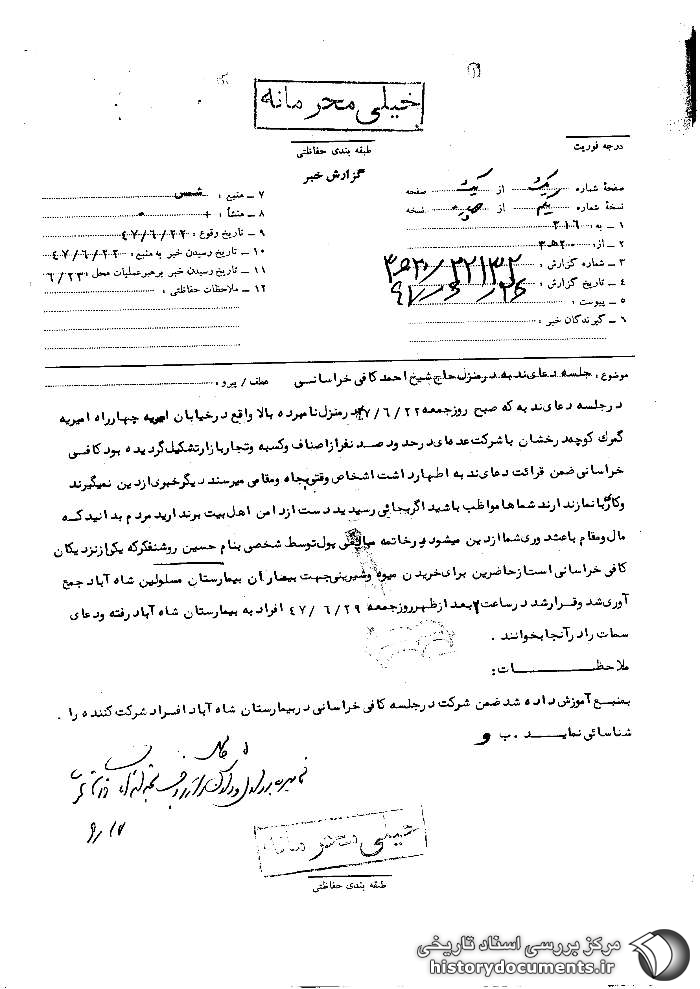 خیلی محرمانه
طبقه بندی حفاظتی
درجه فوریت
گزارش خبر
صفحهٔ شماره یک از یک صفحه
نسخهٔ شماره از نسخه
۱ ـ به : ۳۱۶
۲ ـ از : ۲۰ ه‍ ۳
۳ ـ شماره گزارش : ۲۲۱۳۲
۴ ـ تاریخ گزارش :
۵ ـ پیوست :
۶ ـ گیرندگان خبر :
۷ ـ منبع : شمس
۸ ـ منشأ : +
۹ ـ تاریخ وقوع : ۴۷/۶/۲۲
۱۰ ـ تاریخ رسیدن خبر به منبع : ۴۷/۶/۲۲
۱۱ ـ تاریخ رسیدن خبر برهبر عملیات محل : ۶/۲۳
۱۲ ـ ملاحظات حفاظتی :
موضوع : جلسه دعای ندبه در منزل حاج شیخ احمد کافی خراسانی عطف / پیرو :
در جلسه دعای ندبه که صبح روز جمعه ۴۷/۶/۲۲ در منزل نامبرده بالا واقع در خیابان امیریه چهارراه امیریه
گمرک کوچه درخشان با شرکت عده‌ای در حدود صد نفر از اصناف و کسبه و تجار بازار تشکیل گردیده بود کافی
خراسانی ضمن قرائت دعای ندبه اظهار داشت اشخاص وقتی بجاه و مقامی میرسند دیگر خبری از دین نمیگیرند
و کار با نماز ندارند شما ها مواظب باشید اگر بجائی رسیدید دست از دامن اهل بیت برندارید مردم بدانید که
مال و مقام باعث دوری شما از دین میشود و در خاتمه مبالغی پول توسط شخصی بنام حسین روشنفکر که یکی از نزدیکان
کافی خراسانی است از حاضرین برای خریدن میوه و شیرینی جهت بیماران بیمارستان مسلولین شاه آباد جمع
آوری شد و قرار شد در ساعت ۲ بعد از ظهر روز جمعه ۴۷/۶/۲۹ افراد به بیمارستان شاه آباد رفته و دعای
سمات را در آنجا بخوانند .
ملاحظــــــات :
بمنبع آموزش داده شد ضمن شرکت در جلسه کافی خراسانی در بیمارستان شاه آباد افراد شرکت کننده را
شناسائی نماید . ب و
خیلی محرمانه
طبقه بندی حفاظتی
مرکز بررسی اسناد تاریخی
historydocuments.ir